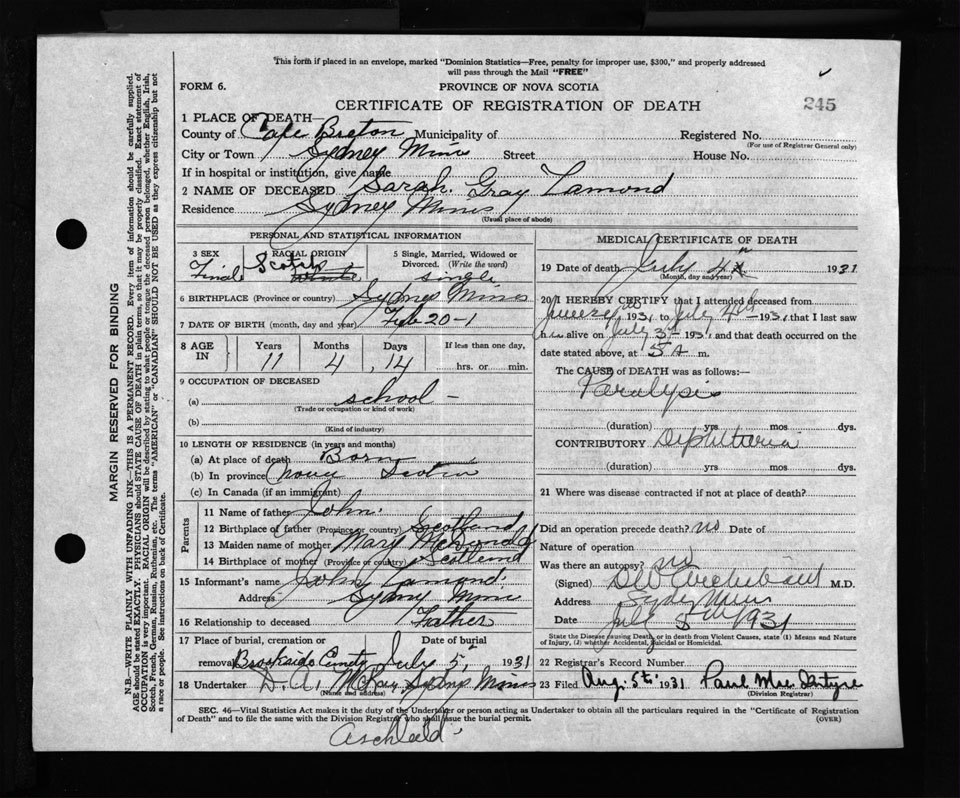 This form if placed in an envelope, marked "Dominion Statistics—Free, penalty for improper use, $300," and properly addressed
will pass through the Mail "FREE"
FORM 6. PROVINCE OF NOVA SCOTIA
CERTIFICATE OF REGISTRATION OF DEATH 245
1 PLACE OF DEATH—
County of Cape Breton Municipality of Registered No.
(For use of Registrar General only)
City or Town Sydney Mines Street House No.
If in hospital or institution, give name
2 NAME OF DECEASED Sarah Gray Lamond
Residence Sydney Mines
(Usual place of abode)
PERSONAL AND STATISTICAL INFORMATION
3 SEX RACIAL ORIGIN 5 Single, Married, Widowed or Divorced. (Write the word)
Scotch single
6 BIRTHPLACE (Province or country) Sydney Mines
7 DATE OF BIRTH (month, day and year) Feb 20-1
8 AGE IN Years Months Days If less than one day,
11 4 14 hrs. or min.
9 OCCUPATION OF DECEASED
(a) school -
(Trade or occupation or kind of work)
(b)
(Kind of industry)
10 LENGTH OF RESIDENCE (in years and months)
(a) At place of death Born
(b) In province Nova Scotia
(c) In Canada (if an immigrant)
Parents
11 Name of father John
12 Birthplace of father (Province or country) Scotland
13 Maiden name of mother Mary
14 Birthplace of mother (Province or country) Scotland
15 Informant's name John Lamond
Address Sydney Mines
16 Relationship to deceased Father
17 Place of burial, cremation or Date of burial
removal Brookside Cemety July 5, 1931
18 Undertaker D. A. McKay, Sydney Mines
(Name and address)
MEDICAL CERTIFICATE OF DEATH
19 Date of death July 4 1931
(Month, day and year)
20 I HEREBY CERTIFY that I attended deceased from
1931 to July 4th 1931, that I last saw
alive on July 3rd 1931, and that death occurred on the
date stated above, at 5 a m.
The CAUSE of DEATH was as follows:—
Paralysis
(duration) yrs mos dys.
CONTRIBUTORY Diphtheria
(duration) yrs mos dys.
21 Where was disease contracted if not at place of death?
Did an operation precede death? no Date of
Nature of operation
Was there an autopsy? no
(Signed) M.D.
Address Sydney Mines
Date July 5th 1931
State the Disease causing Death, or in death from Violent Causes, state (1) Means and Nature
of Injury, (2) whether Accidental, Suicidal or Homicidal.
22 Registrar's Record Number
23 Filed Aug. 5th 1931 Paul MacIntyre
(Division Registrar)
SEC. 46—Vital Statistics Act makes it the duty of the Undertaker or person acting as Undertaker to obtain all the particulars required in the "Certificate of Registration
of Death" and to file the same with the Division Registrar who shall issue the burial permit. (OVER)
MARGIN RESERVED FOR BINDING
N.B.—WRITE PLAINLY WITH UNFADING INK—THIS IS A PERMANENT RECORD. Every item of information should be carefully supplied.
AGE should be stated EXACTLY. PHYSICIANS should STATE CAUSE OF DEATH in plain terms, so that it may be properly classified. Exact statement of
OCCUPATION is very important. RACIAL ORIGIN will be described by stating to what people or tongue the deceased person belonged, whether English, Irish,
Scotch, French, German, Russian, Ruthenian, etc. The terms "AMERICAN" or "CANADIAN" SHOULD NOT BE USED as they express citizenship but not
a race or people. See instructions on back of Certificate.